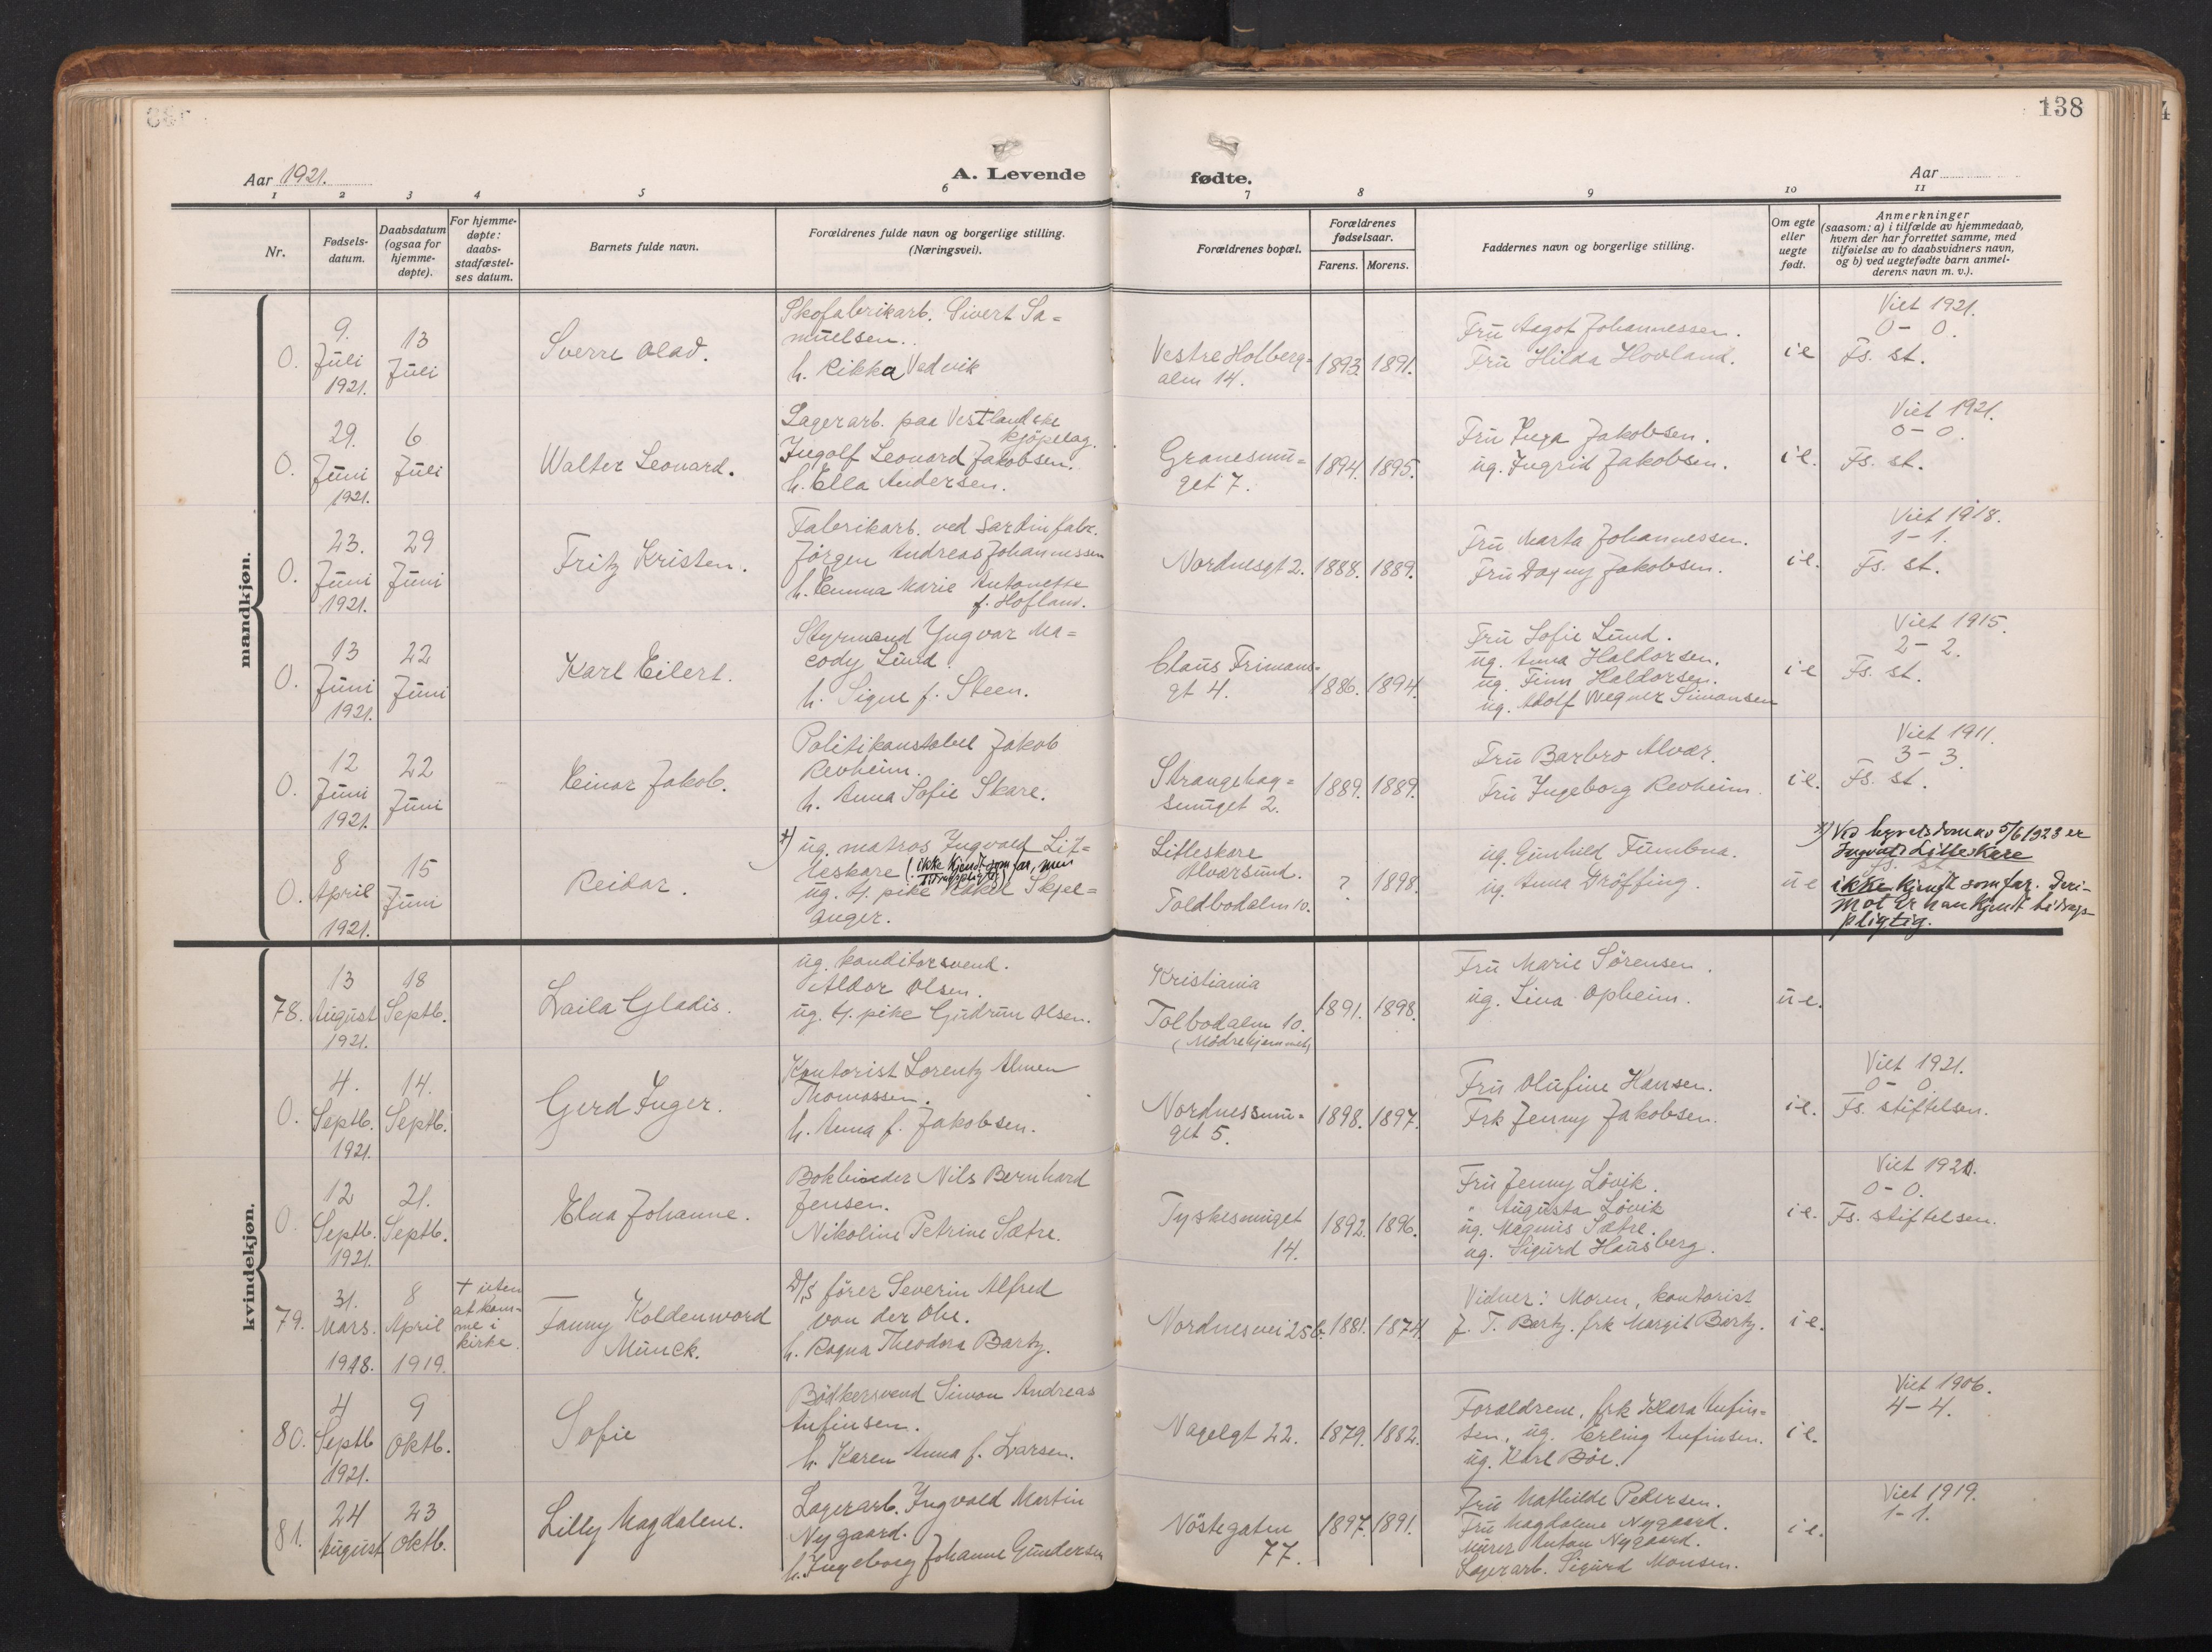 138
Aar 1921.
A. Levende
fødte.
Aar
1 2 3 4 5 6 7 8 9 10 11
Nr.
Fødsels-
datum.
Daabsdatum
(ogsaa for
hjemme-
døpte).
For hjemme-
døpte:
daabs-
stadfæstel-
ses datum.
Barnets fulde navn.
Forældrenes fulde navn og borgerlige stilling.
(Næringsvei).
Forældrenes bopæl.
Forældrenes
fødselsaar.
Farens. Morens.
Faddernes navn og borgerlige stilling.
Om egte
eller
uegte
født.
Anmerkninger
(saasom: a) i tilfælde av hjemmedaab,
hvem der har forrettet samme, med
tilføielse av to daabsvidners navn,
og b) ved uegtefødte barn anmel-
derens navn m. v.).
mandkjøn.
0.
9.
Juli
1921.
13
Juli
Sverre Olad.
Skofabrikarb. Sivert Sa=
muelsen.
h. Rikka Vedvik
Vestre Holberg=
alm 14.
1893. 1891.
Fru Aagot Johannessen.
Fru Hilda Hovland.
i e
Viet 1921.
0 - 0.
Fs. st.
0.
29.
Juni
1921.
6
Juli
Walter Leonard.
Lagerarb. paa Vestlandske
kjøpelag.
Ingolf Leonard Jakobsen.
h. Ella Andersen.
Granesmu=
get 7.
1894. 1895.
Fru Inga Jakobsen.
ug. Ingrid Jakobsen.
i e.
Viet 1921.
0 - 0.
Fs. st.
0.
23.
Juni
1921.
29
Juni
Fritz Kristen.
Fabrikarb. ved Sardinfabr.
Jörgen Andreas Johannessen
h. Emma Marie Antonette
f. Hofland.
Nordnesgt 2.
1888. 1889.
Fru Marta Johannessen.
Fru Dagny Jakobsen.
i e.
Viet 1918.
1 - 1.
Fs. st.
0.
13
Juni
1921.
22
Juni
Karl Eilert.
Styrmand Yngvar Ma=
cody Lund.
h. Signe f. Steen.
Claus Frimans=
gt 4.
1886. 1894.
Fru Sofie Lund.
ug. Anna Haldorsen.
ug. Finn Haldorsen.
ug. Adolf Wegner Simonsen
i e
Viet 1915.
2 - 2.
Fs. st.
0.
12
Juni
1921.
22
Juni
Einar Jakob.
Politikonstabel Jakob
Revheim.
h. Anna Sofie Skare.
Strangehag=
smuget 2.
1889. 1889.
Fru Barbro Alvær.
Fru Ingeborg Revheim.
i e.
Viet 1911.
3 - 3.
Fs. st.
0.
8
April
1921.
15
Juni
Reidar.
x) ug. matros Ingvald Lit=
leskare (ikke kjendt som far, men
bidragspligtig)
ug. tj. pike Rakel Skjel=
anger.
Litleskare
Alversund.
Toldbodalm 10.
? 1898.
ug. Gunhild Fumbna.
ug. Anna Dröffing.
u e
x) Ved herredsdom av 5/6 1923 er
Ingvald Litleskare
ikke kjendt som far. Deri-
mot er han kjendt bidrags-
pligtig.
kvindekjøn.
78.
13
August
1921.
18
Septb.
Laila Gladis.
ug. konditorsvend.
Aldor Olsen.
ug. tj. pike Gudrun Olsen.
Kristiania
Tolbodalm 10.
(Mödrehjemmet)
1891. 1898.
Fru Marie Sörensen.
ug. Lina Opheim.
u e.
0.
4.
Septb.
1921.
14.
Septb.
Gerd Inger.
Kontorist Lorentz Almen
Thomassen.
h. Anna f. Jakobsen.
Nordnessmu=
get 5.
1898. 1897.
Fru Olufine Hansen.
Frk Jenny Jakobsen.
i e.
Viet 1921.
0 - 0.
Fs. stiftelsen.
0.
12
Septb.
1921.
21.
Septb.
Elna Johanne.
Bokbinder Nils Bernhard
Jensen.
Nikoline Petrine Sætre.
Tyskesmuget
14.
1892. 1896.
Fru Jenny Lövik.
" Augusta Lövik
ug. Magnus Sætre.
ug. Sigurd Hausberg.
i e.
Viet 1920.
0 - 0.
Fs. stiftelsen.
79.
31.
Mars.
1918.
8
April
1919.
+ uten
at kom-
me i
kirke.
Fanny Koldenword
Munck.
D/S förer Severin Alfred
von der Ohe.
h. Ragna Theodora Bartz.
Nordnesvei 25b.
1881. 1874.
Vidner: Moren, kontorist
J. T. Bertz, frk Margit Bertz.
i e.
80.
4
Septb
1921.
9
Oktb.
Sofie
Bödkersvend Simon Andreas
Anfinsen.
h. Karen Anna f. Larsen.
Nagelgt 22.
1879. 1882.
Forældrene, frk Klara Anfin=
sen, ug. Erling Anfinsen.
ug. Karl Böe.
i e.
Viet 1906.
4 - 4.
81.
24
August
23
Oktb.
Lilly Magdalene.
Lagerarb. Ingvald Martin
Nygaard.
h. Ingeborg Johanne Gundersen
Nöstegaten
77.
1897. 1891.
Fru Mathilde Pedersen.
Fru Magdalene Nygaard.
murer Anton Nygaard.
Lagerarb. Sigurd Monsen.
i e.
Viet 1919.
1 - 1.